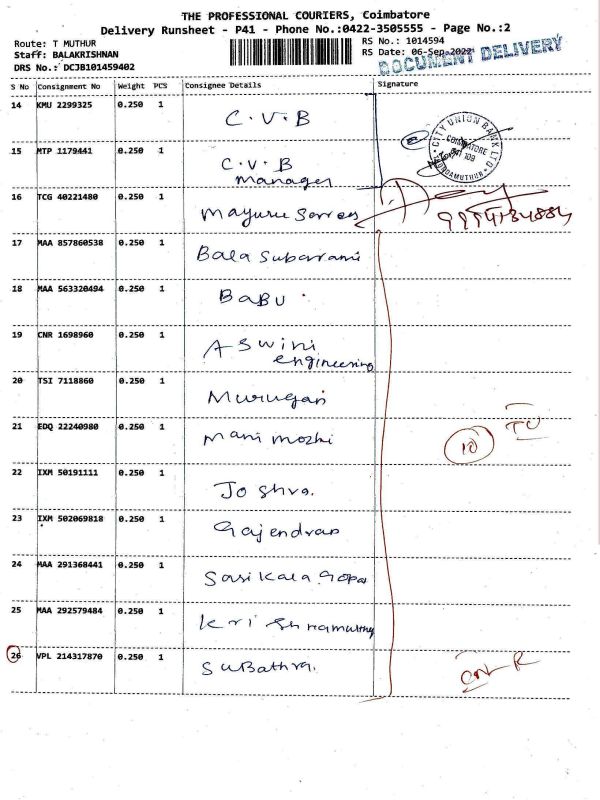 THE PROFESSIONAL COURIERS, Coimbatore
Delivery Runsheet - P41 - Phone No.:0422-3505555 - Page No.:2
Route: T MUTHUR
Staff: BALAKRISHNAN
DRS No.: DCJB101459402
RS No.: 1014594
RS Date: 06-Sep-2022
DOCUMENT DELIVERY
S No Consignment No Weight PCS Consignee Details Signature
14 KMU 2299325 0.250 1 C.V.B
CITY UNION BANK LTD
COIMBATORE
15 MTP 1179441 0.250 1 C.V.B
manager
16 TCG 40221480 0.250 1
17 MAA 857860538 0.250 1 Bala Subarami
18 MAA 563320494 0.250 1 BaBU
19 CNR 1698960 0.250 1 Aswini
engineering
20 TSI 7118860 0.250 1 Murugan
21 EDQ 22240980 0.250 1 Mani mozhi
10
22 IXM 50191111 0.250 1 Joshva.
23 IXM 502069818 0.250 1 Gajendran
24 MAA 291368441 0.250 1 Sasikala Gopa
25 MAA 292579484 0.250 1 Krishnamurthy
26 VPL 214317870 0.250 1 SuBathra.